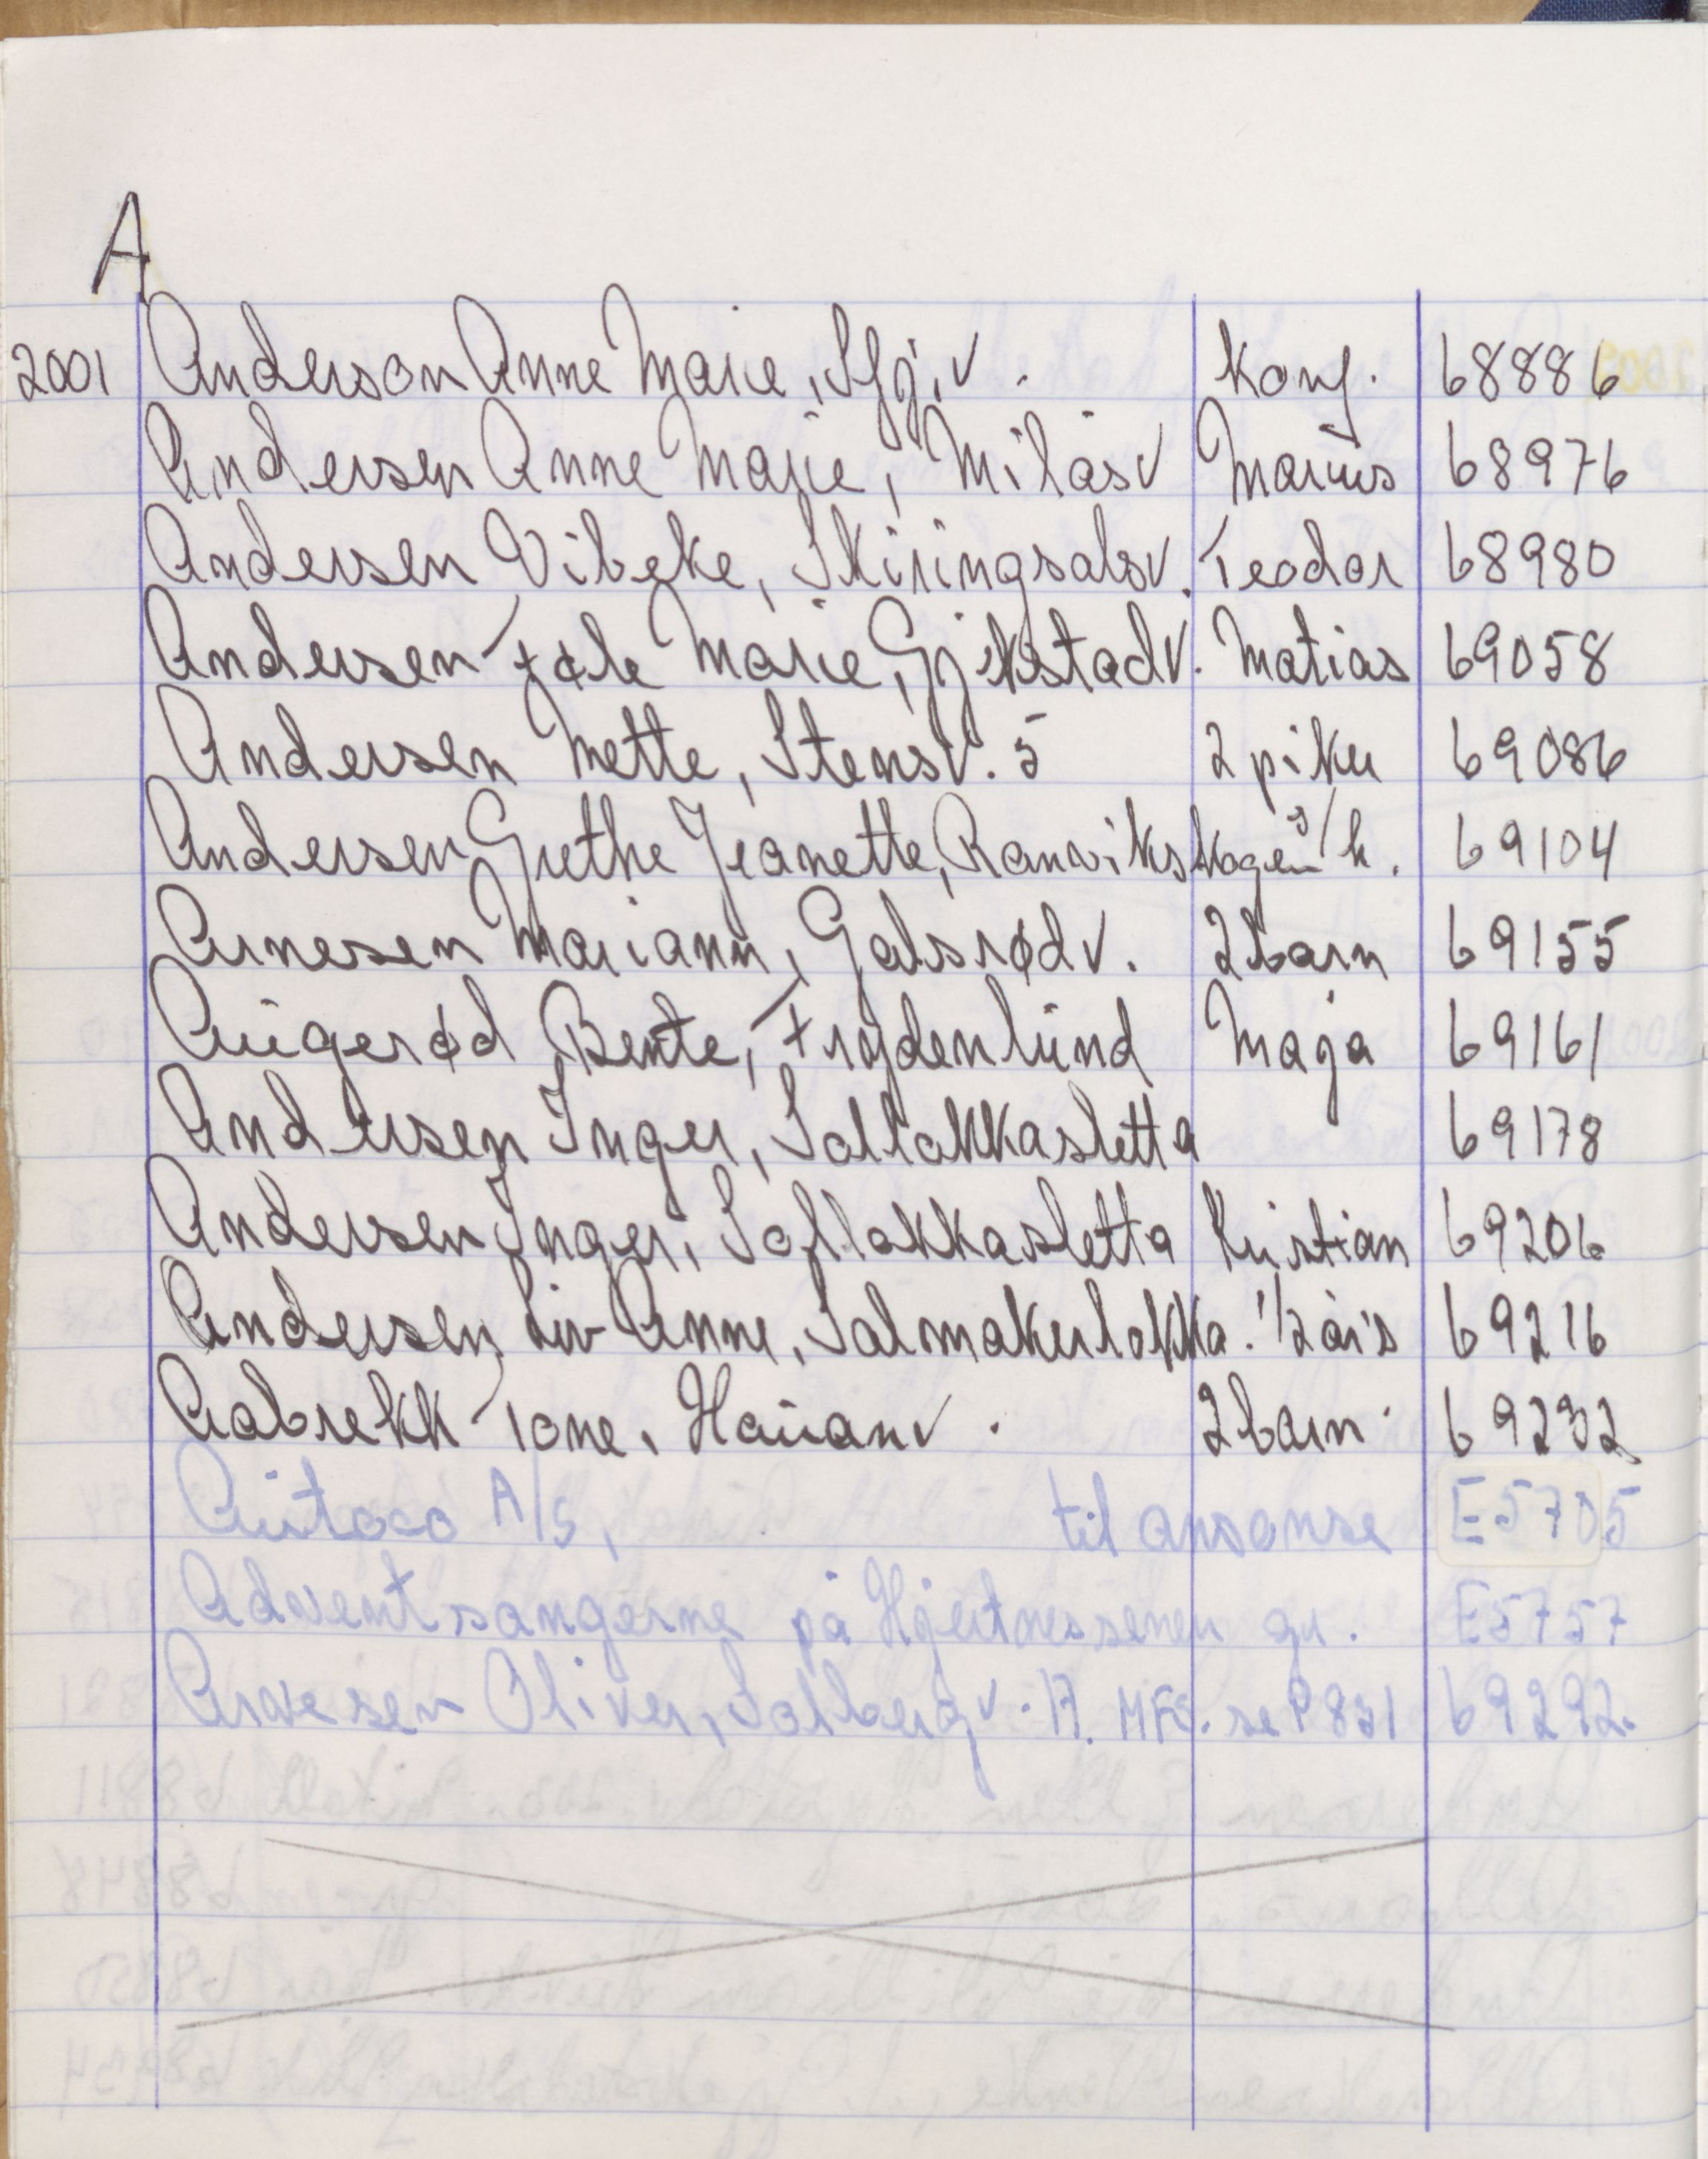 A
2001 Anderson Anne Marie, Sfj.v. konf. 68886
Andersen Anne Marie, Milåsv Marius 68976
Andersen Vibeke, Skiringsalsv. Teodor 68980
Andersen Marie, Gjekstadv. Matias 69058
Andersen Mette, Stensv. 5 2 piker 69086
Andersen Grethe Jeanette, Ranvikskogen s/h. 69104
Arnesen Mariann, Galsrødv. 2 barn 69155
Augerød Bente, Frydenlund Maja 69161
Andersen Inger, Solløkkasletta 69178
Andersen Inger, Solløkkasletta Kristian 69206
Andersen Liv Anne, Salmakerløkka. 1/2 års 69216
Aabrekk Tone, Hauanv. 2 barn. 69232
Autoco A/S, til annonse E5705
Adventsangerne på Hjertnessenen gr. E5757
Arvesen Oliver, Solbergv. 17. MFS. se P831 69292.